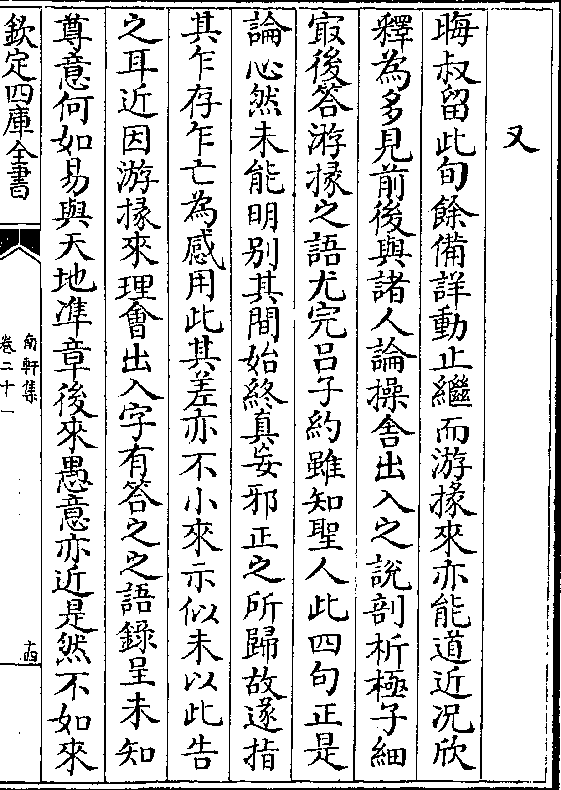 又
晦叔留此旬餘備詳動止繼而游掾來亦能道近况欣
釋為多見前後與諸人論操舍出入之說剖析極子細
㝡後答游掾之語尤完吕子約雖知聖人此四句正是
論心然未能明别其間始終真妄邪正之所歸故遂指
其乍存乍亡為感用此其差亦不小來示似未以此告
之耳近因游掾來理會出入字有答之之語錄呈未知
尊意何如易與天地凖章後來愚意亦近是然不如來
欽定四庫全書
南軒集
卷二十一
十四